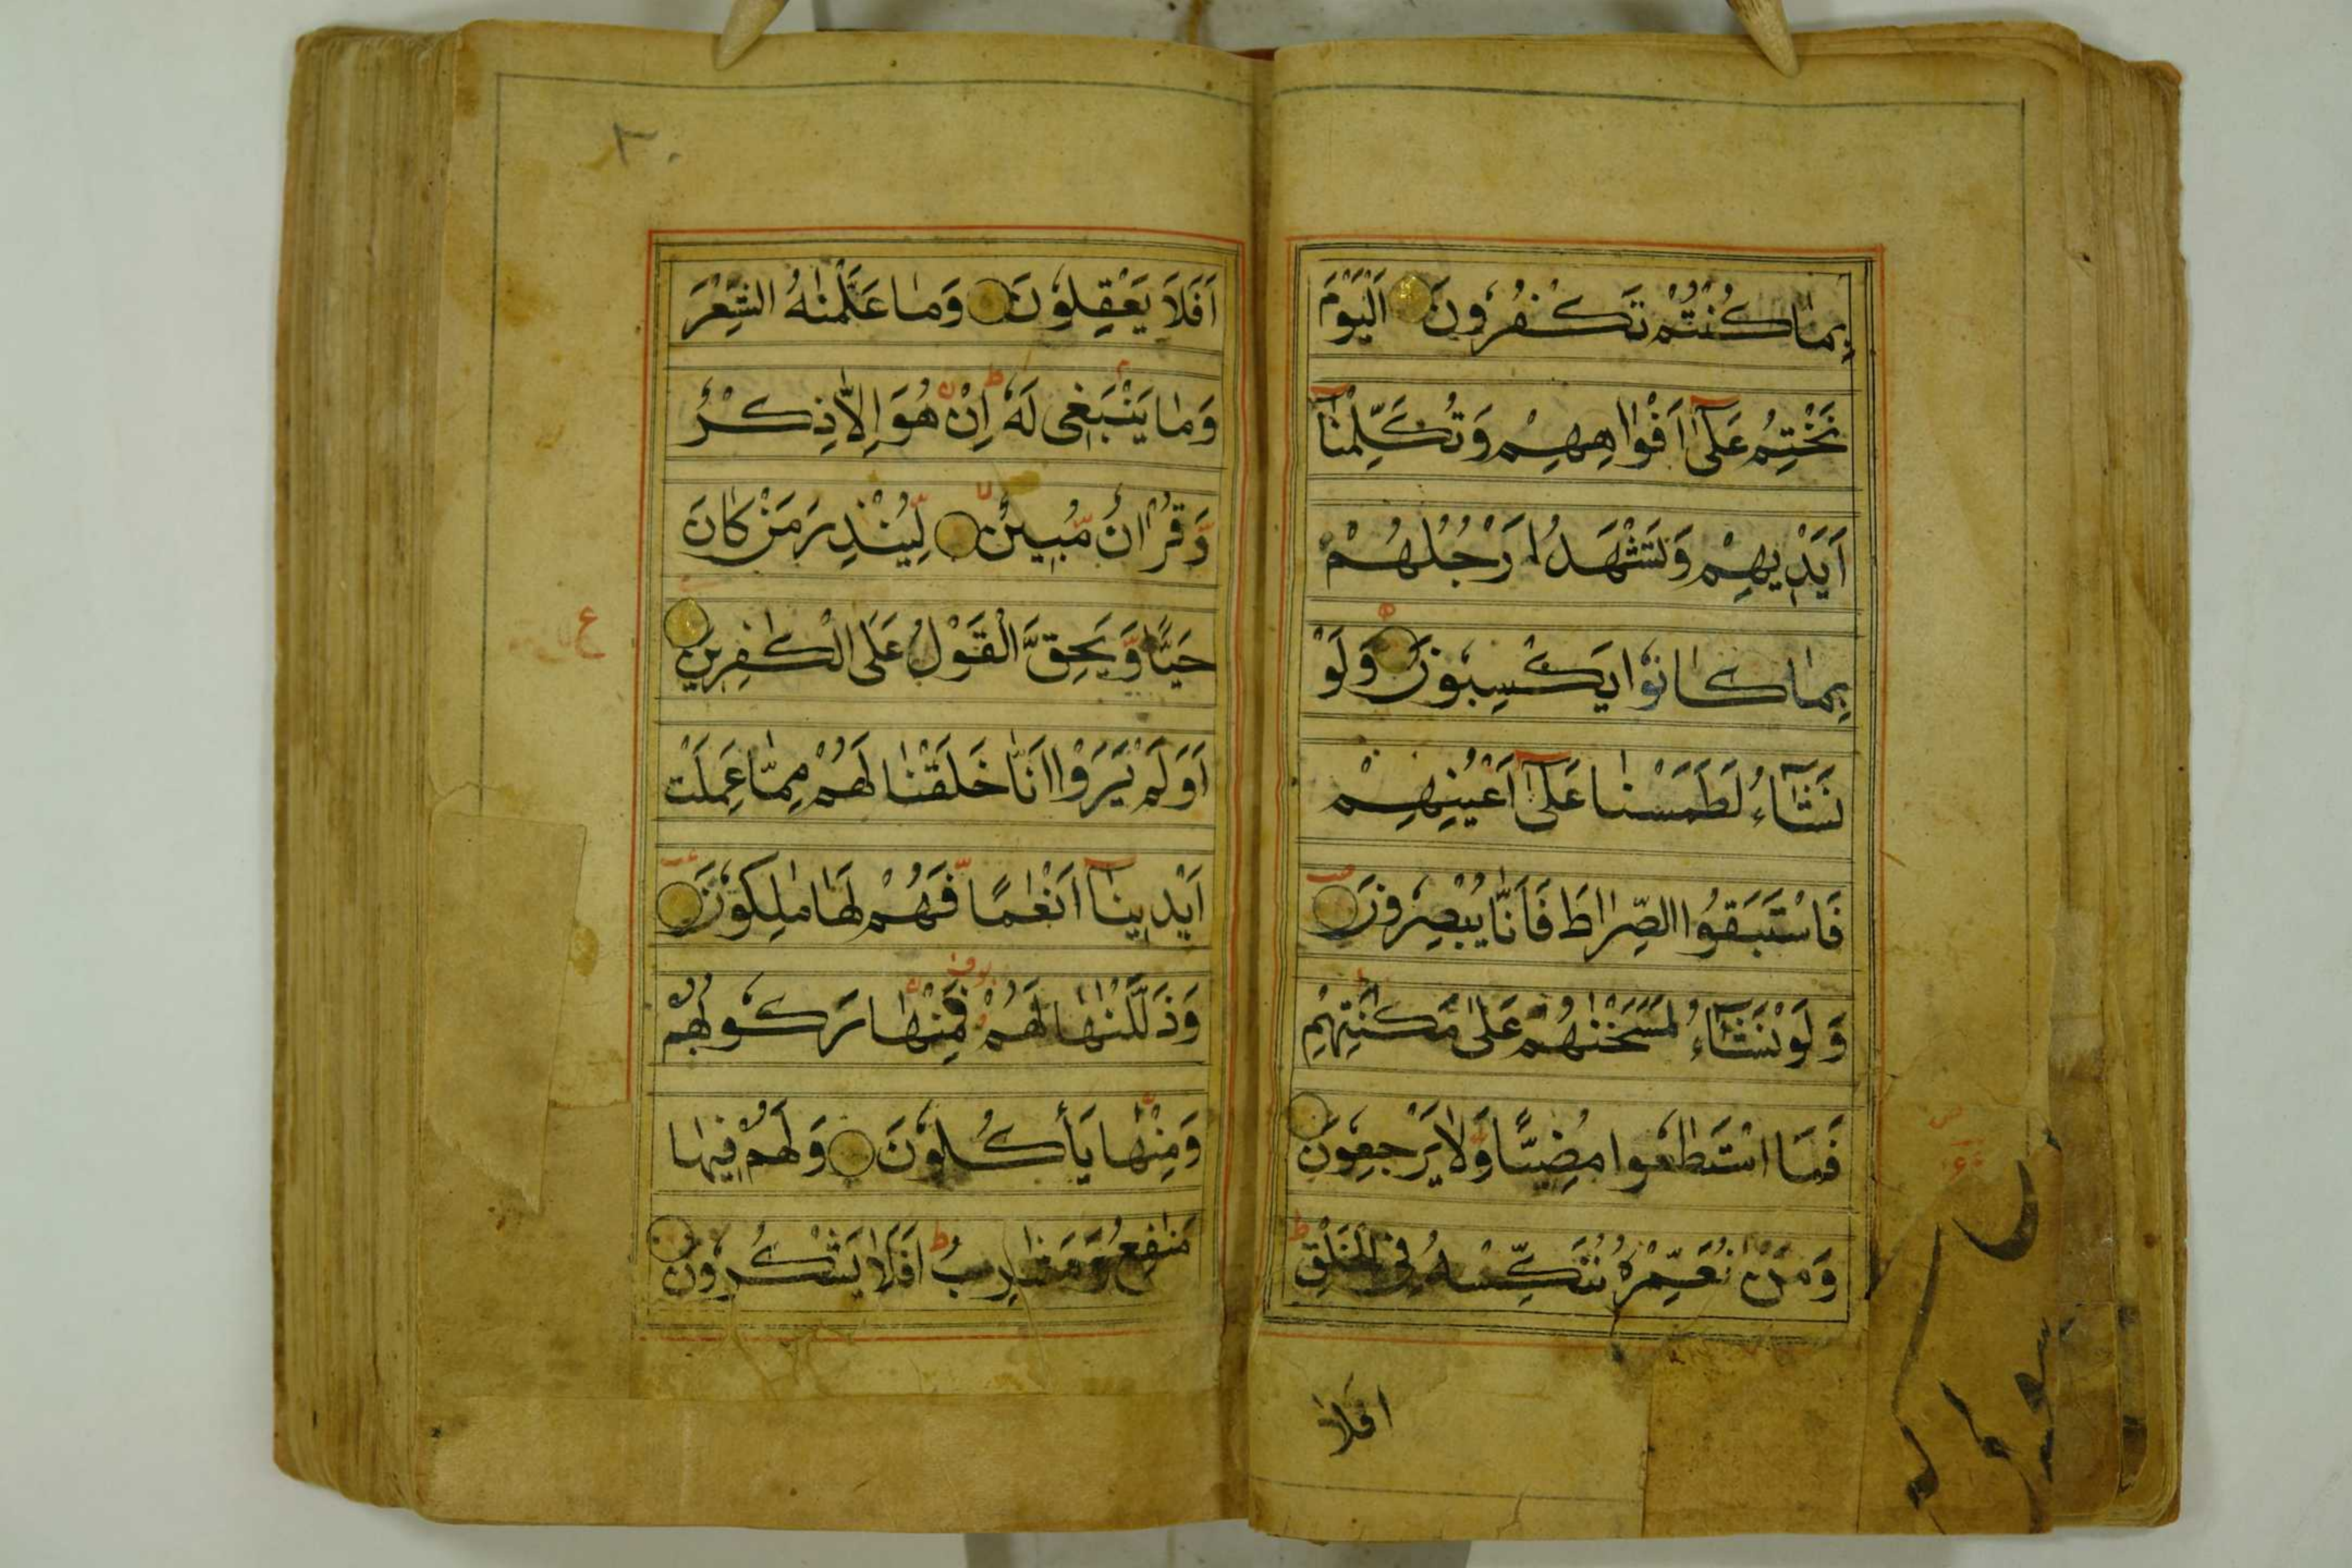 بِمَا كُنْتُمْ تَكْفُرُونَ اَلْيَوْمَ
نَخْتِمُ عَلٰٓى اَفْوَاهِهِمْ وَتُكَلِّمُنَآ
اَيْدِيهِمْ وَتَشْهَدُ اَرْجُلُهُمْ
بِمَا كَانُوا يَكْسِبُونَ وَلَوْ
نَشَآءُ لَطَمَسْنَا عَلٰٓى اَعْيُنِهِمْ
فَاسْتَبَقُوا الصِّرَاطَ فَاَنّٰى يُبْصِرُونَ
وَلَوْ نَشَآءُ لَمَسَخْنٰهُمْ عَلٰى مَكَانَتِهِمْ
فَمَا اسْتَطٰعُوا مُضِيًّا وَّلَا يَرْجِعُونَ
وَمَنْ نُعَمِّرْهُ نُنَكِّسْهُ فِى الْخَلْقِ
افلا
اَفَلَا يَعْقِلُونَ وَمَا عَلَّمْنٰهُ الشِّعْرَ
وَمَا يَنْۢبَغِى لَهٗ اِنْ هُوَ اِلَّا ذِكْرٌ
وَّقُرْاٰنٌ مُّبِينٌ لِّيُنْذِرَ مَنْ كَانَ
حَيًّا وَّيَحِقَّ الْقَوْلُ عَلَى الْكٰفِرِينَ
اَوَلَمْ يَرَوْا اَنَّا خَلَقْنَا لَهُمْ مِمَّا عَمِلَتْ
اَيْدِينَآ اَنْعٰمًا فَهُمْ لَهَا مٰلِكُونَ
وَذَلَّلْنٰهَا لَهُمْ فَمِنْهَا رَكُوبُهُمْ
وَمِنْهَا يَأْكُلُونَ وَلَهُمْ فِيهَا
مَنٰفِعُ وَمَشَارِبُ اَفَلَا يَشْكُرُونَ